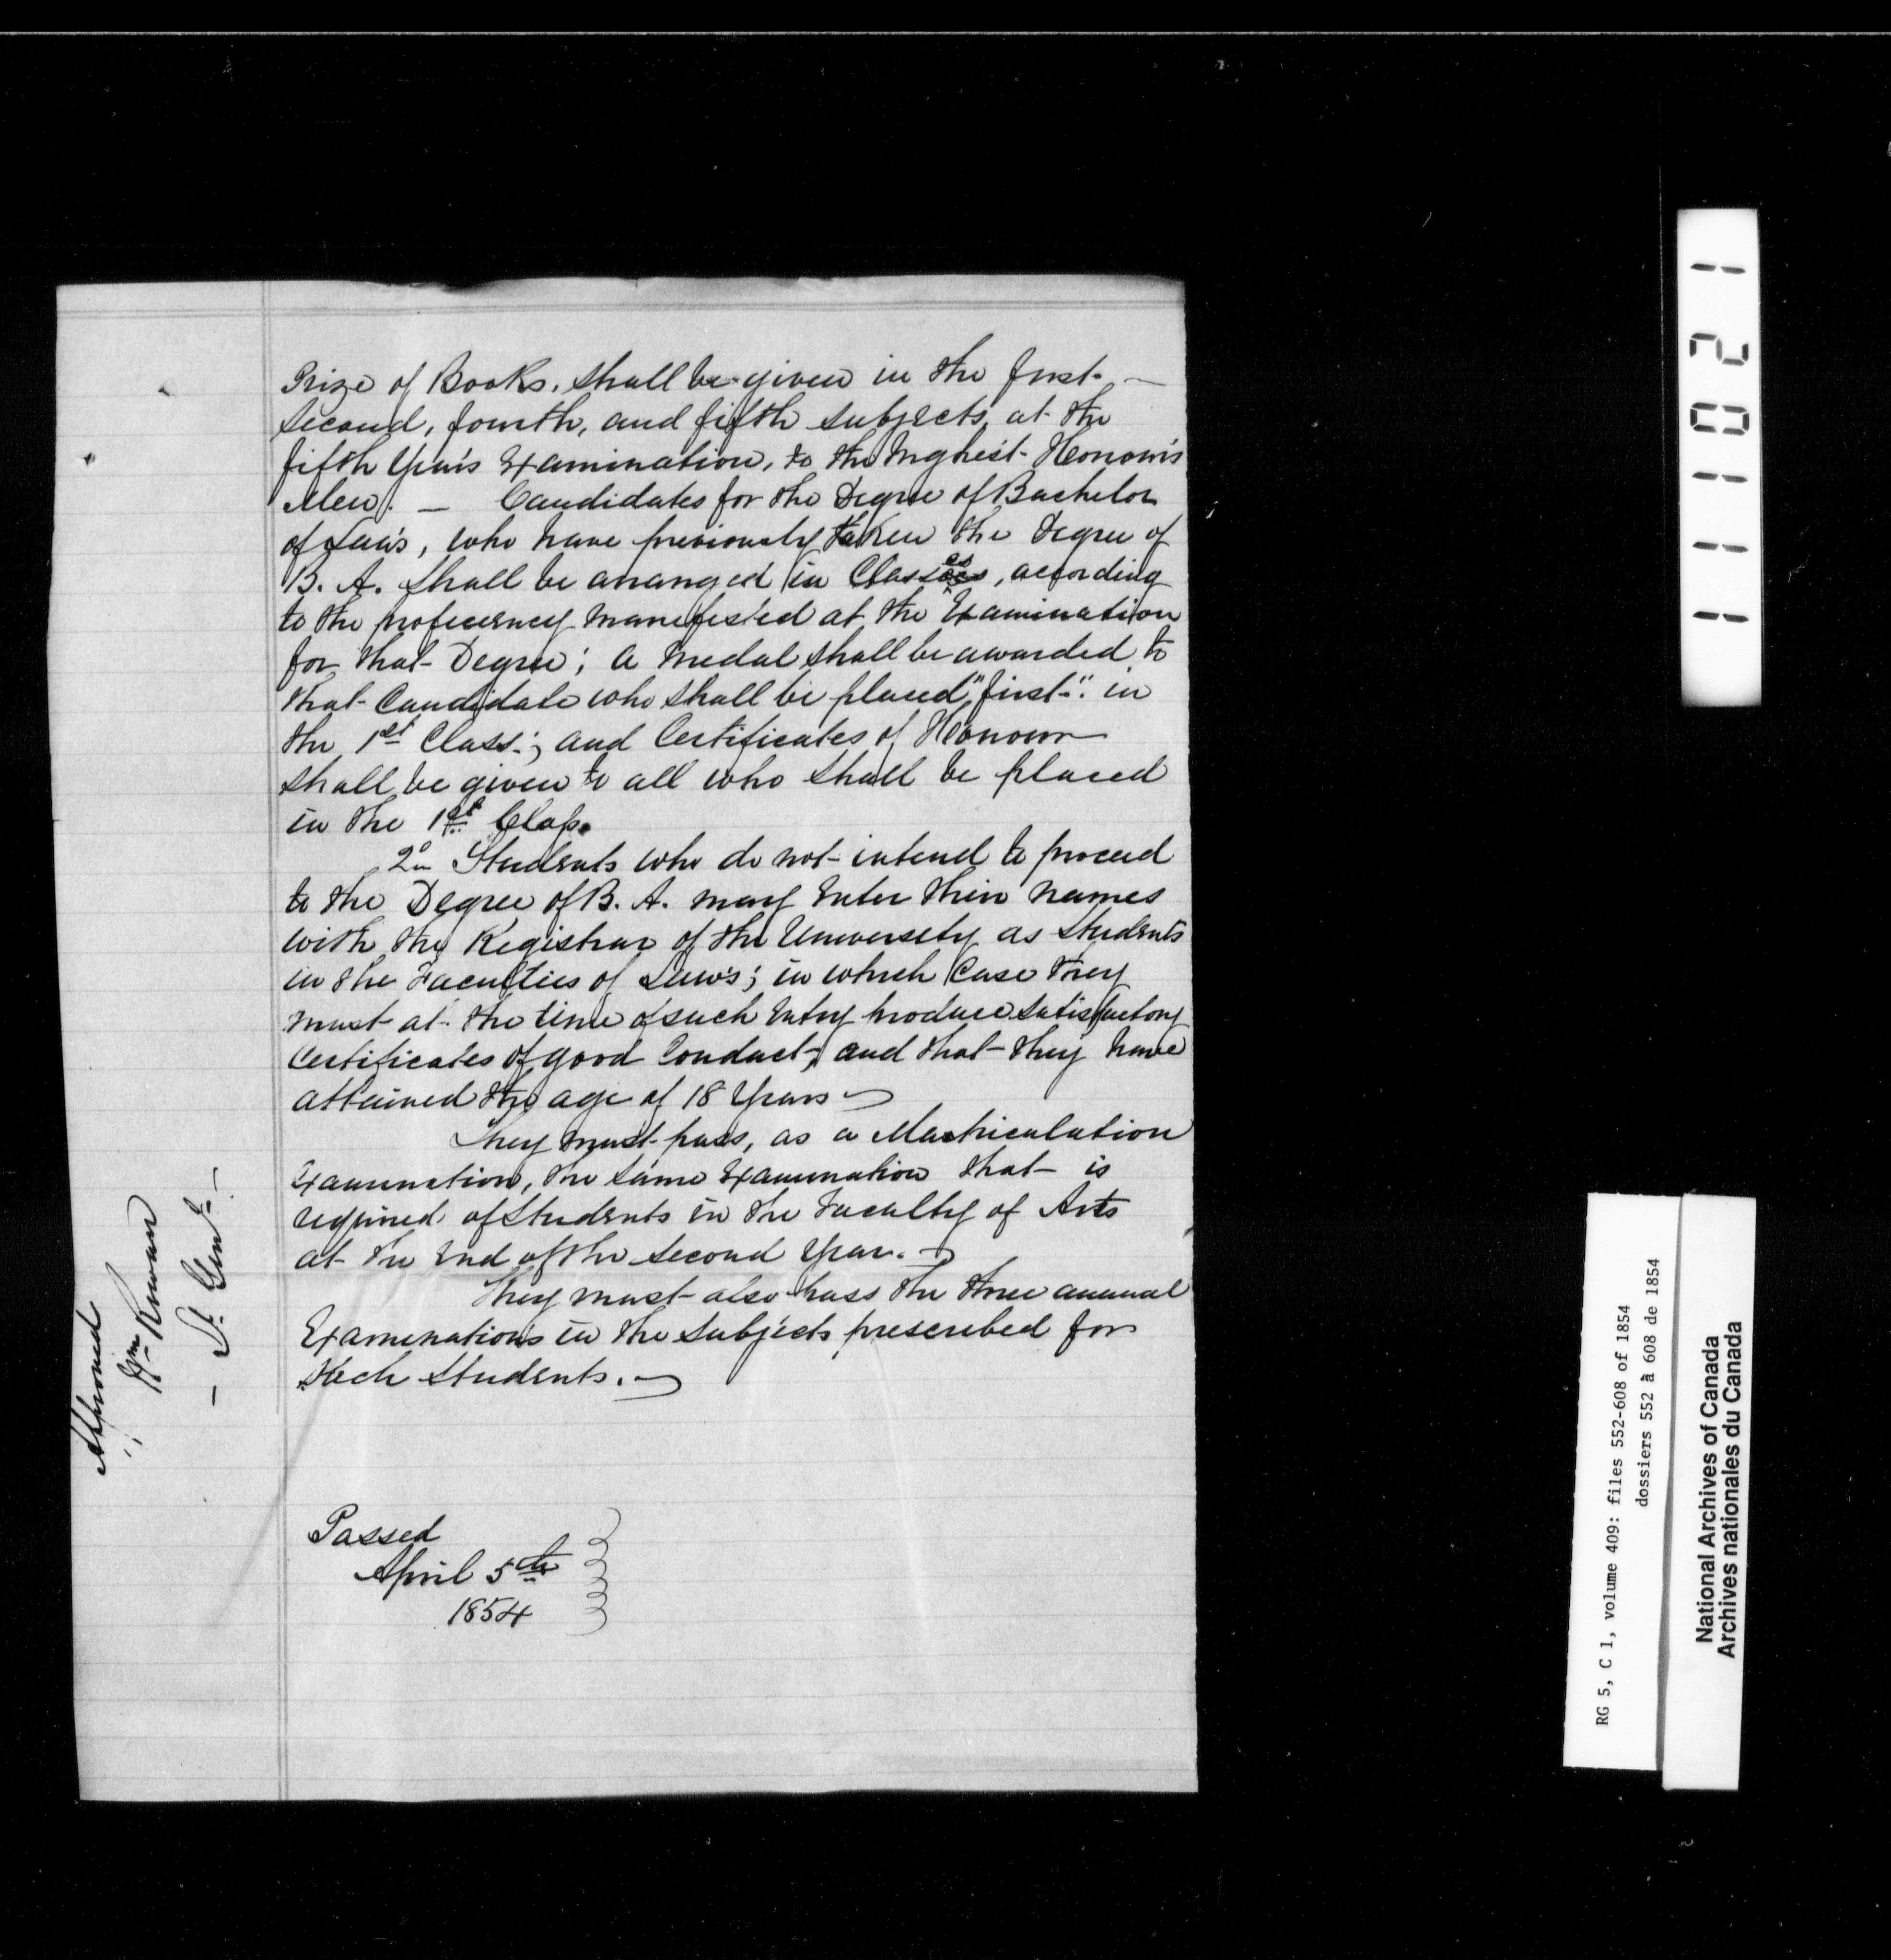 Prize of Books, shall be given in the first —
Second, fourth, and fifth subjects, at the
fifth Year's Examination, to the highest Honours
Men. — Candidates for the Degree of Bachelor
of Laws, who have previously taken the Degree of
B. A. shall be arranged in Classes, according
to the proficiency manifested at the Examination
for that Degree; a medal shall be awarded to
that Candidate who shall be placed "first" in
the 1st Class; and Certificates of Honour
shall be given to all who shall be placed
in the 1st Class.
2o Students who do not intend to proceed
to the Degree of B. A. may enter their names
with the Registrar of the University as Students
in the Faculties of Laws; in which Case they
must at the time of such Entry produce satisfactory
Certificates of good Conduct, and that they have
attained the age of 18 Years
They must pass, as a Matriculation
Examination, the same Examination that is
required of Students in the Faculty of Arts
at the End of the Second Year.
They must also pass the three annual
Examinations in the Subjects prescribed for
such Students.
Passed
April 5th
1854
Approved
Wm Rowan
— Lt Genl —
111021
RG 5, C 1, volume 409: files 552-608 of 1854
dossiers 552 à 608 de 1854
National Archives of Canada
Archives nationales du Canada